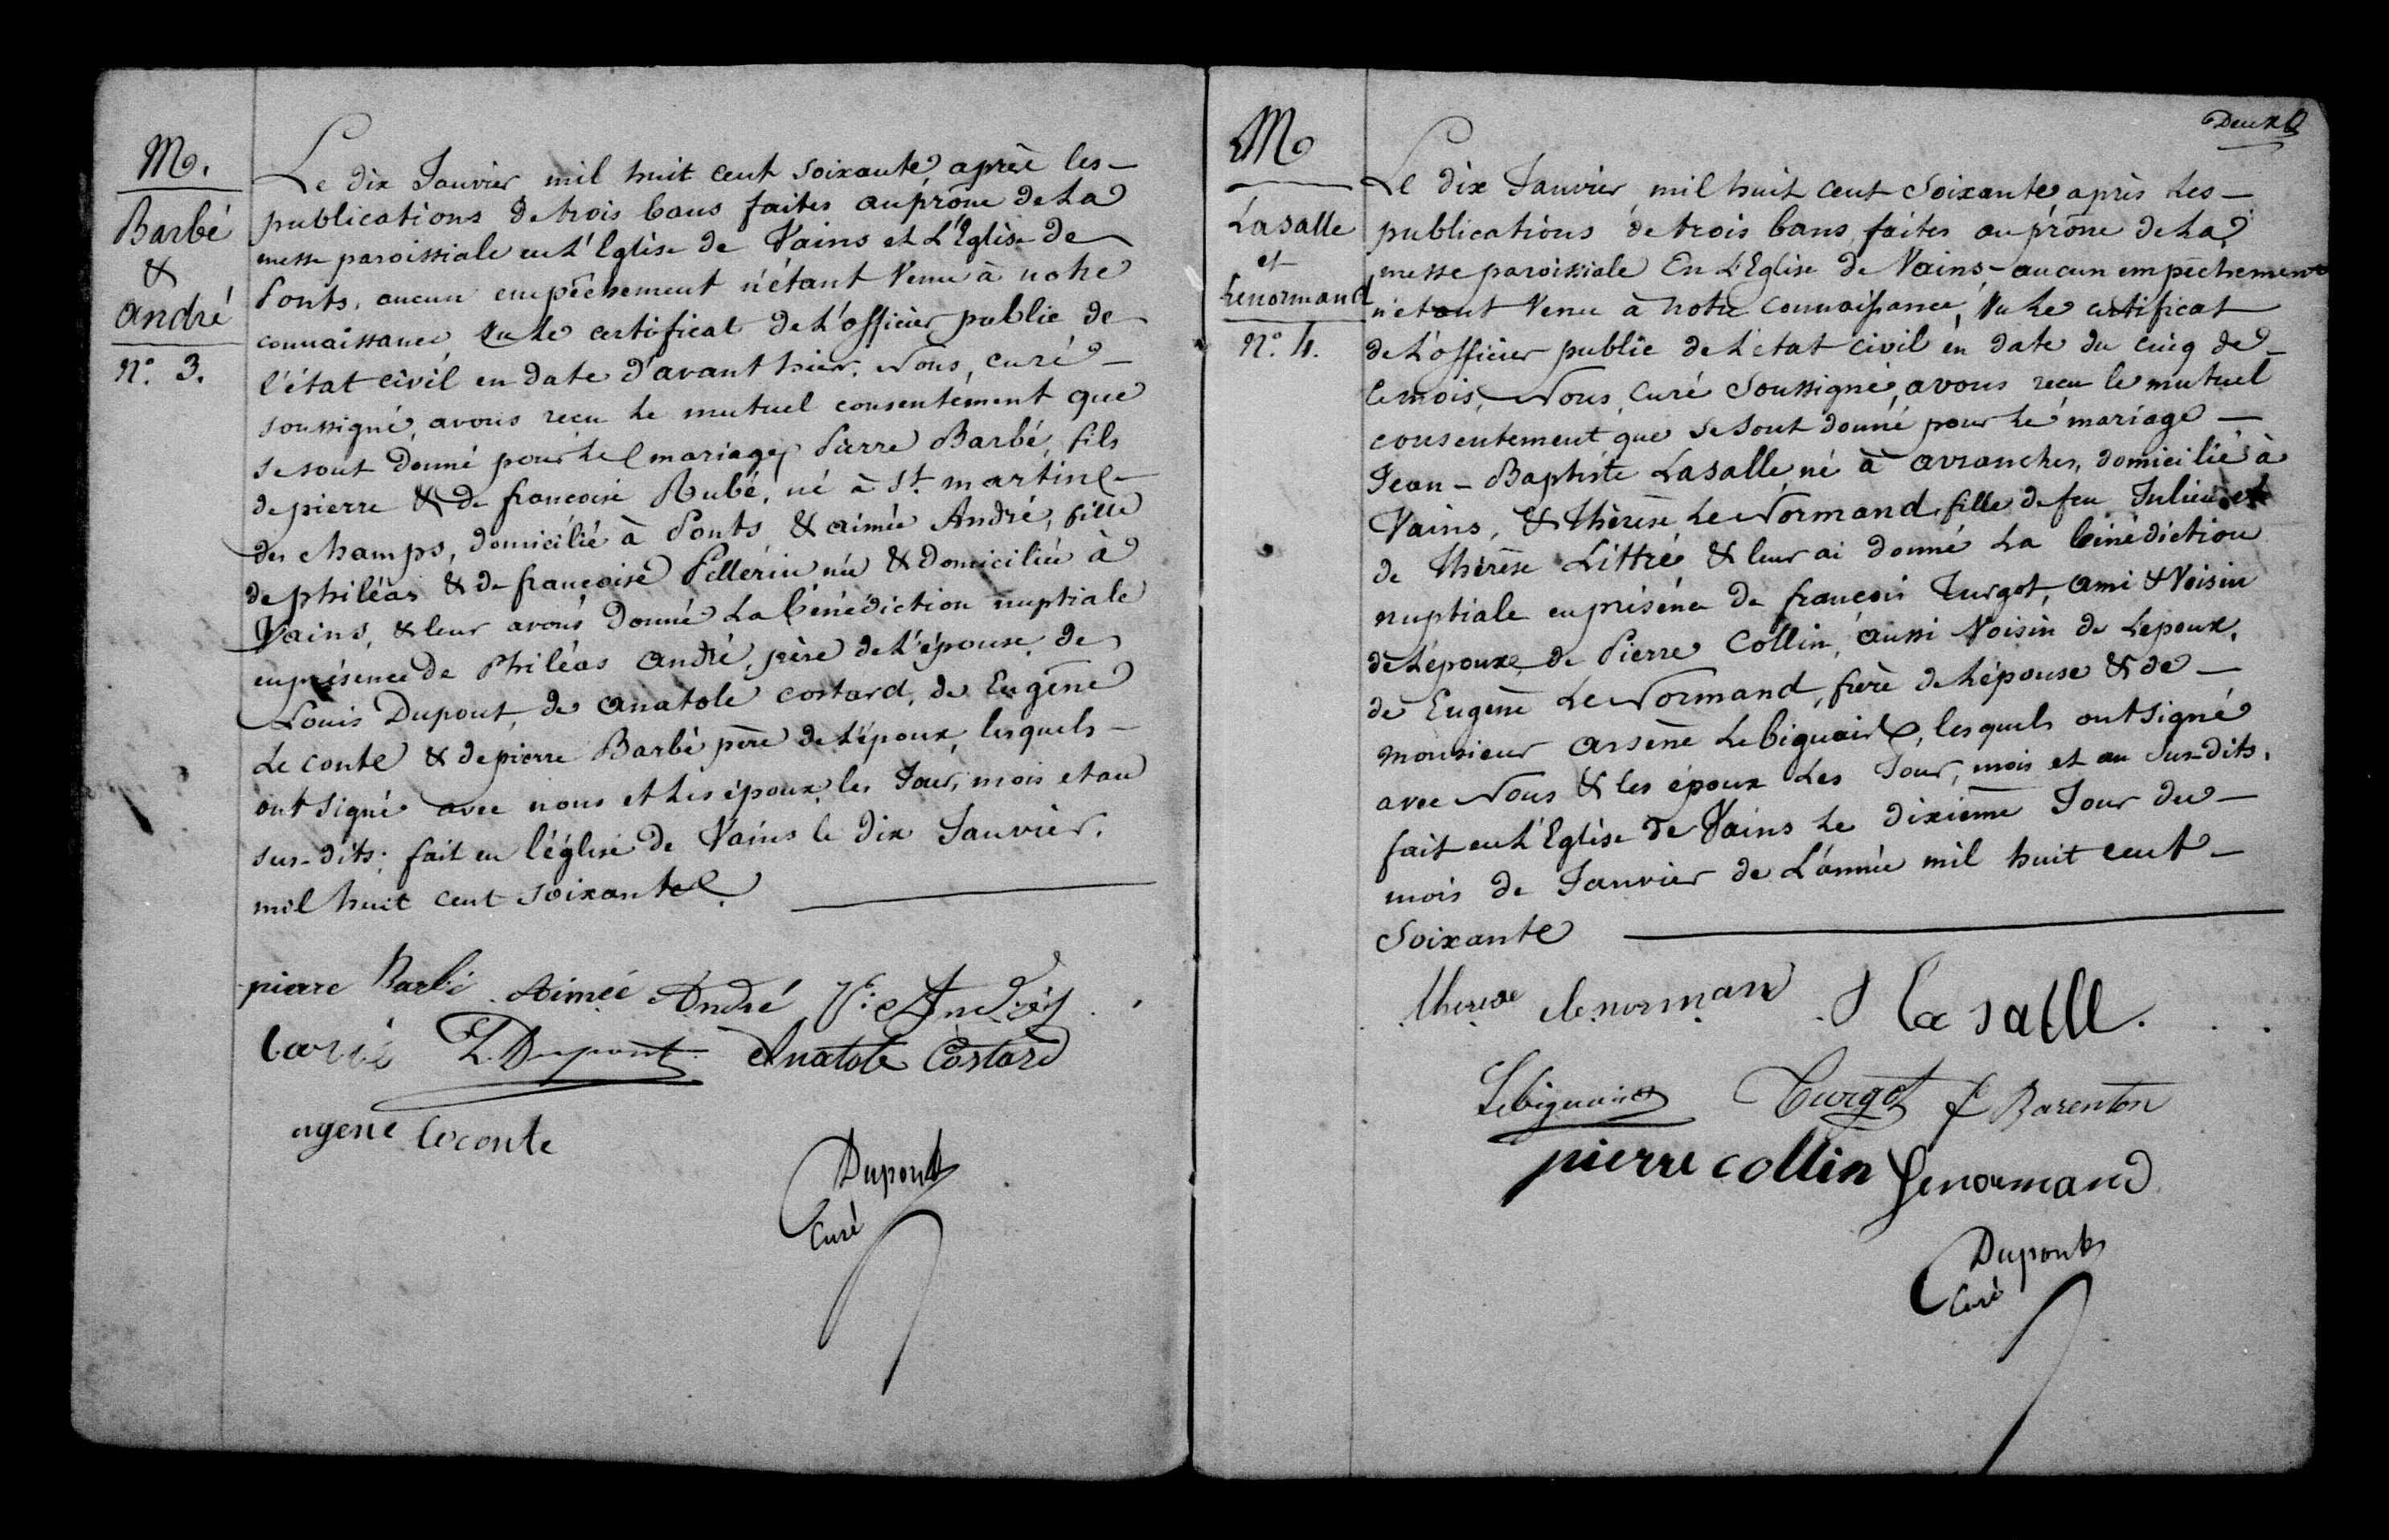 M.
Barbé
&
andré
N°. 3.
Le dix Janvier mil huit cent soixante, après les —
publications de trois bans faites au prône de La
messe paroissiale en L'Eglise de Vains et L'Eglise de
Ponts, aucun empêchement n'étant Venu à notre
connaissance Vu Le certificat de L'officier public de
l'état civil en date d'avant hier. Nous, curé —
soussigné, avons reçu Le mutuel consentement que
se sont Donné pour Le mariage, Pierre Barbé, fils
de pierre & de francoise Aubé, né à St. martin —
des champs, domicilié à Ponts & aimée André, fille
de philéas & de françoise Pellerin née & domiciliée à
Vains, & leur avons donné La bénédiction nuptiale
en présence de Philéas andré, père de L'épouse, de
Louis Dupont, de anatole costard, de Eugène
Le conte & de pierre Barbé père de L'époux, lesquels —
ont signé avec nous et Les époux, les Jour, mois et an
sus-dits; fait en l'église de Vains le dix Janvier.
mil huit cent soixante.
pierre Barbé Aimée André P: André
barbé L. Dupont Anatole Costard
ugene leconte
Dupont
Curé
Deux
M
Lasalle
et
Lenormand
N°. 4.
Le dix Janvier mil huit cent Soixante, après Les —
publications de trois bans faites au prône de La
messe paroissiale En L'Eglise de Vains - aucun empêchement
n'étant Venu à notre connaissance, Vu Le certificat
de L'officier public de L'état civil en date du cinq de
ce mois, Nous, curé Soussigné, avons reçu le mutuel
consentement que se sont donné pour Le mariage —
Jean - Baptiste Lasalle, né à avranches, domicilié à
Vains, & thérèse Le Normand, fille de feu Julien et
de thérèse Littré & leur ai donné La bénédiction
nuptiale en présence de françois Turgot, ami & Voisin
de L'époux, de Pierre Collin, aussi Voisin de L'époux,
de Eugène Le Normand, frère de L'épouse & de —
monsieur arsène Lebiguais, lesquels ont signé
avec Nous & les époux Les Jour, mois et an sus-dits.
fait en L'Eglise de Vains Le dixième Jour du —
mois de Janvier de L'année mil huit cent —
Soixante
therese lenorman J la salle.
Lebiguais Turgot f Barenton
pierre collin Lenormand
Dupont
Curé